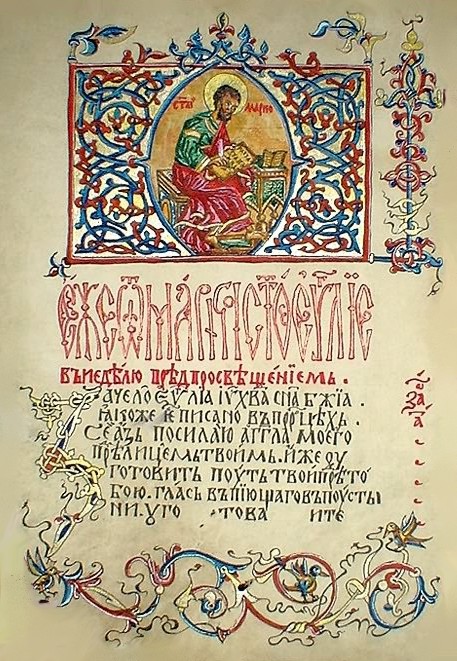 СТЫ МАРКО
ЕЖЕ Ѿ МАРКА СТОЕ ЕѴЛІЕ
ВЪ НЕДѢЛЮ ПРѢДПРОСВѢЩЕНІЕМЬ .
ЗАЧЕЛО ЕѴЛИА ІУ ХВА СНА БЖІА .
ꙖКОЖЕ Е ПИСАНО ВЪ ПРРЦѢХЬ .
СЕ АЗЬ ПОСИЛАЮ АГГЛА МОЕГО
ПРѢ ЛИЦЕМЬ ТВОИМЬ . ИЖЕ ОУ
ГОТОВИТЬ ПОУТЬ ТВОИ ПРѢ ТО
БОЮ . ГЛАСЬ ВЪПІЮЩАГО ВЪ ПОУСТЫ
НИ . УГОТОВАИТЕ
ЗА
А